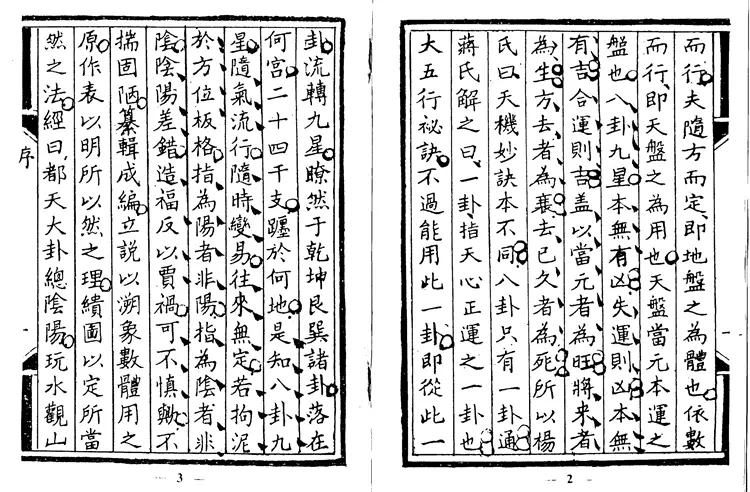 而行、夫隨方而定、即地盤之為體也。依數
而行、即天盤之為用也。天盤當元本運之
盤也、八卦九星。本無有凶、失運則凶。本無
有吉、合運則吉。蓋以當元者為旺、將來者
為生、方去者為衰、去已久者為死。所以楊
氏曰、天機妙訣本不同。八卦只有一卦通。
蔣氏解之曰、一卦、指天心正運之一卦也。
大五行祕訣。不過能用此一卦。即從此一
— 2 —
卦。流轉九星。瞭然于乾坤艮巽諸卦。落在
何宮。二十四干支。躔於何地。是知八卦九
星、隨氣流行、隨時變易。往來無定。若拘泥
於方位板格、指為陽者非陽、指為陰者非
陰、陰陽差錯、造福反以賈禍。可不慎歟。不
揣固陋。纂輯成編。立說以溯象數體用之
原。作表以明所以然之理。繢圖以定所當
然之法。經曰、都天大卦總陰陽。玩水觀山
序
— 3 —